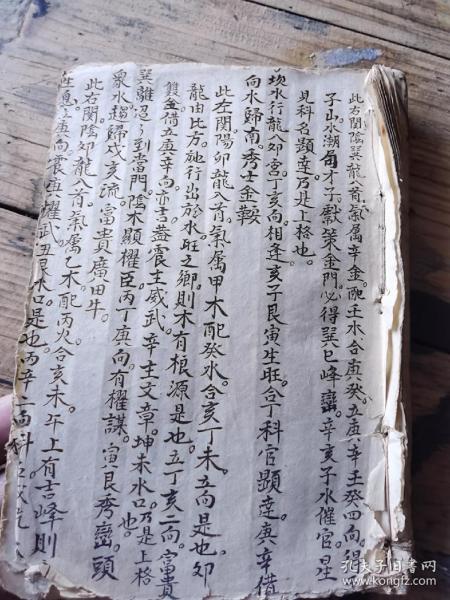 此右関陰巽龍入首氣属辛金。配壬水合庚癸。立庚辛壬癸四向。得
子山水潮向才子獻策金門。必得巽巳峰巒。辛亥子水催官星
見科名顯達。乃是上格也。
坎水行龍卯宮。丁亥向相逢。亥子艮寅生旺合。丁科官顯達。庚辛借
向水歸南。秀士金鞍
此左関陽卯龍入首氣属甲木配癸水合亥丁未。立向是也。卯
龍由比方。施行出於水旺之鄉。則木有根源是也。立丁亥二向富貴
雙金借立庚辛向亦吉。蓋震主威武。辛主文章。坤未水口。乃是上格
巽離
到當門。陰木顯櫂臣。丙丁庚向有櫂謀。寅艮秀巒頭
衆水趨歸戌亥流。富貴廣田牛。
此右関陰卯龍入首氣属乙木配丙火合亥未。
上有吉峰則
庚向震
櫂武。丑艮水口是也。丙辛
向科
孔夫子旧书网